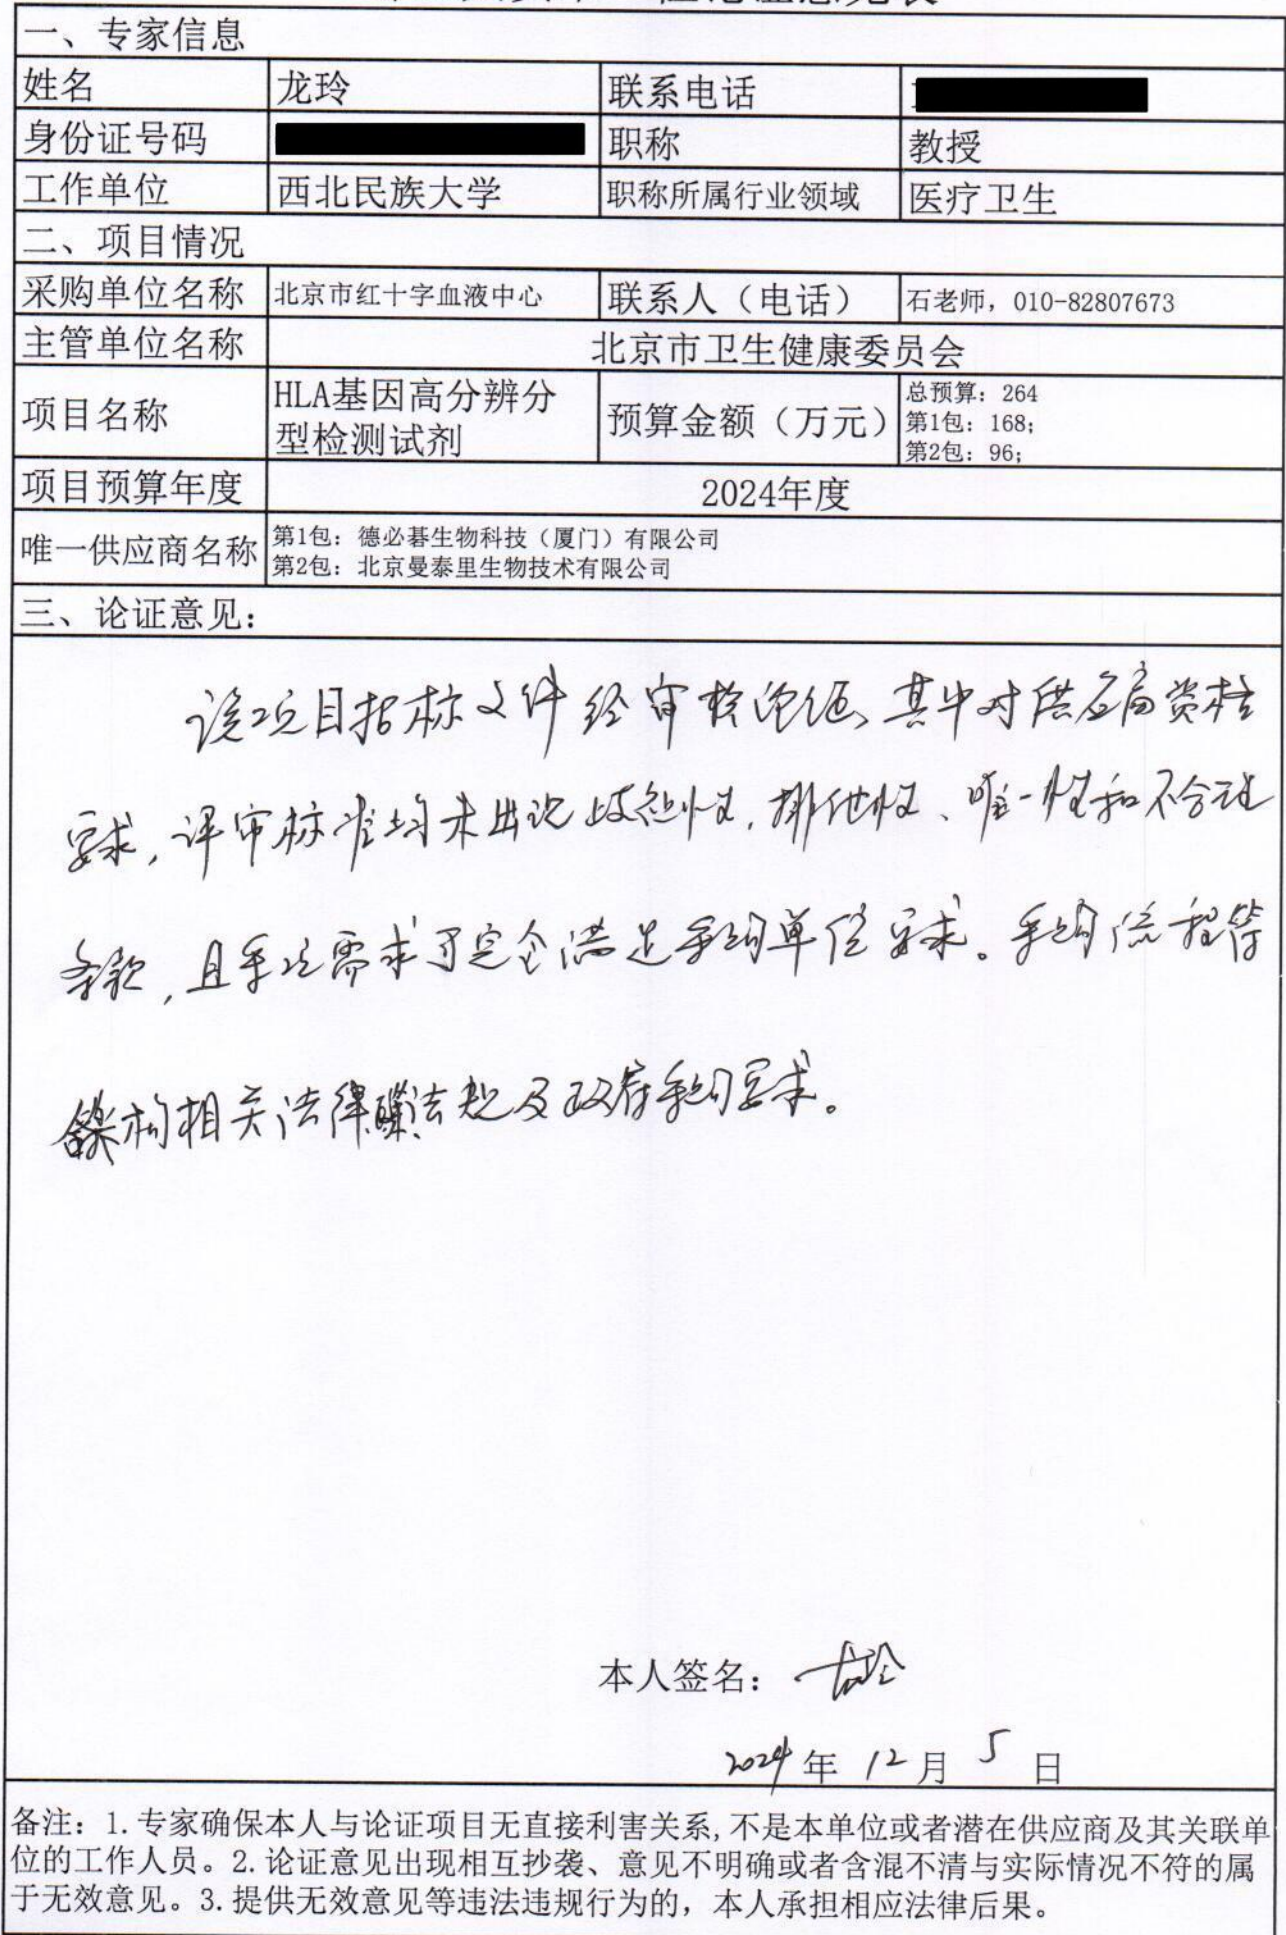 一、专家信息
姓名 龙玲 联系电话
身份证号码 职称 教授
工作单位 西北民族大学 职称所属行业领域 医疗卫生
二、项目情况
采购单位名称 北京市红十字血液中心 联系人（电话） 石老师，010-82807673
主管单位名称 北京市卫生健康委员会
项目名称 HLA基因高分辨分型检测试剂 预算金额（万元） 总预算：264
第1包：168；
第2包：96；
项目预算年度 2024年度
唯一供应商名称 第1包：德必碁生物科技（厦门）有限公司
第2包：北京曼泰里生物技术有限公司
三、论证意见：
该项目招标文件经审核论证、其中对供应商资格
要求，评审标准均未出现歧视性、排他性、唯一性和不合理
条款，且 需求可完全满足采购单位要求。采购流程符
相关法律 法规及政府采购要求。
本人签名： 龙玲
2024 年 12 月 5 日
备注：1.专家确保本人与论证项目无直接利害关系,不是本单位或者潜在供应商及其关联单
位的工作人员。2.论证意见出现相互抄袭、意见不明确或者含混不清与实际情况不符的属
于无效意见。3.提供无效意见等违法违规行为的，本人承担相应法律后果。